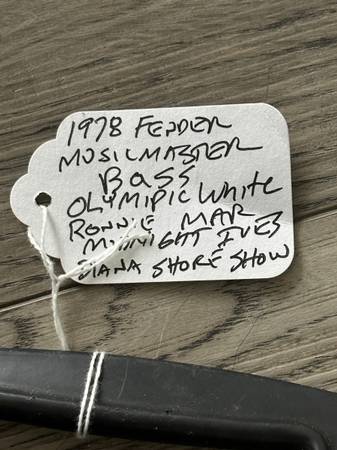 1978 FENDER
MUSICMASTER
BASS
OLYMIPIC WHITE
RONNIE MAR
MIDNIGHT
DIANA SHORE SHOW